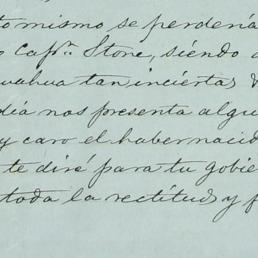 to mismo se perdería
Capn. Stone, siendo
uahua tan inciertas
día nos presenta algu
y caro el habernacid
te diré para tu gobie
toda la rectitud y f